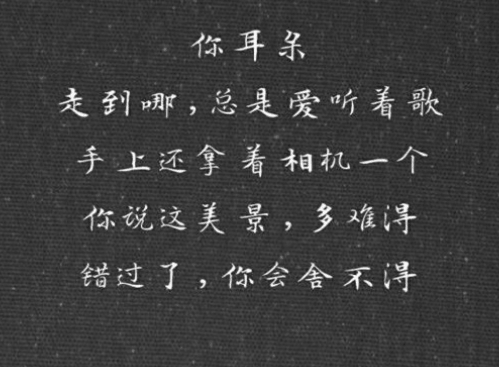 你耳朵
走到哪，总是爱听着歌
手上还拿着相机一个
你说这美景，多难得
错过了，你会舍不得